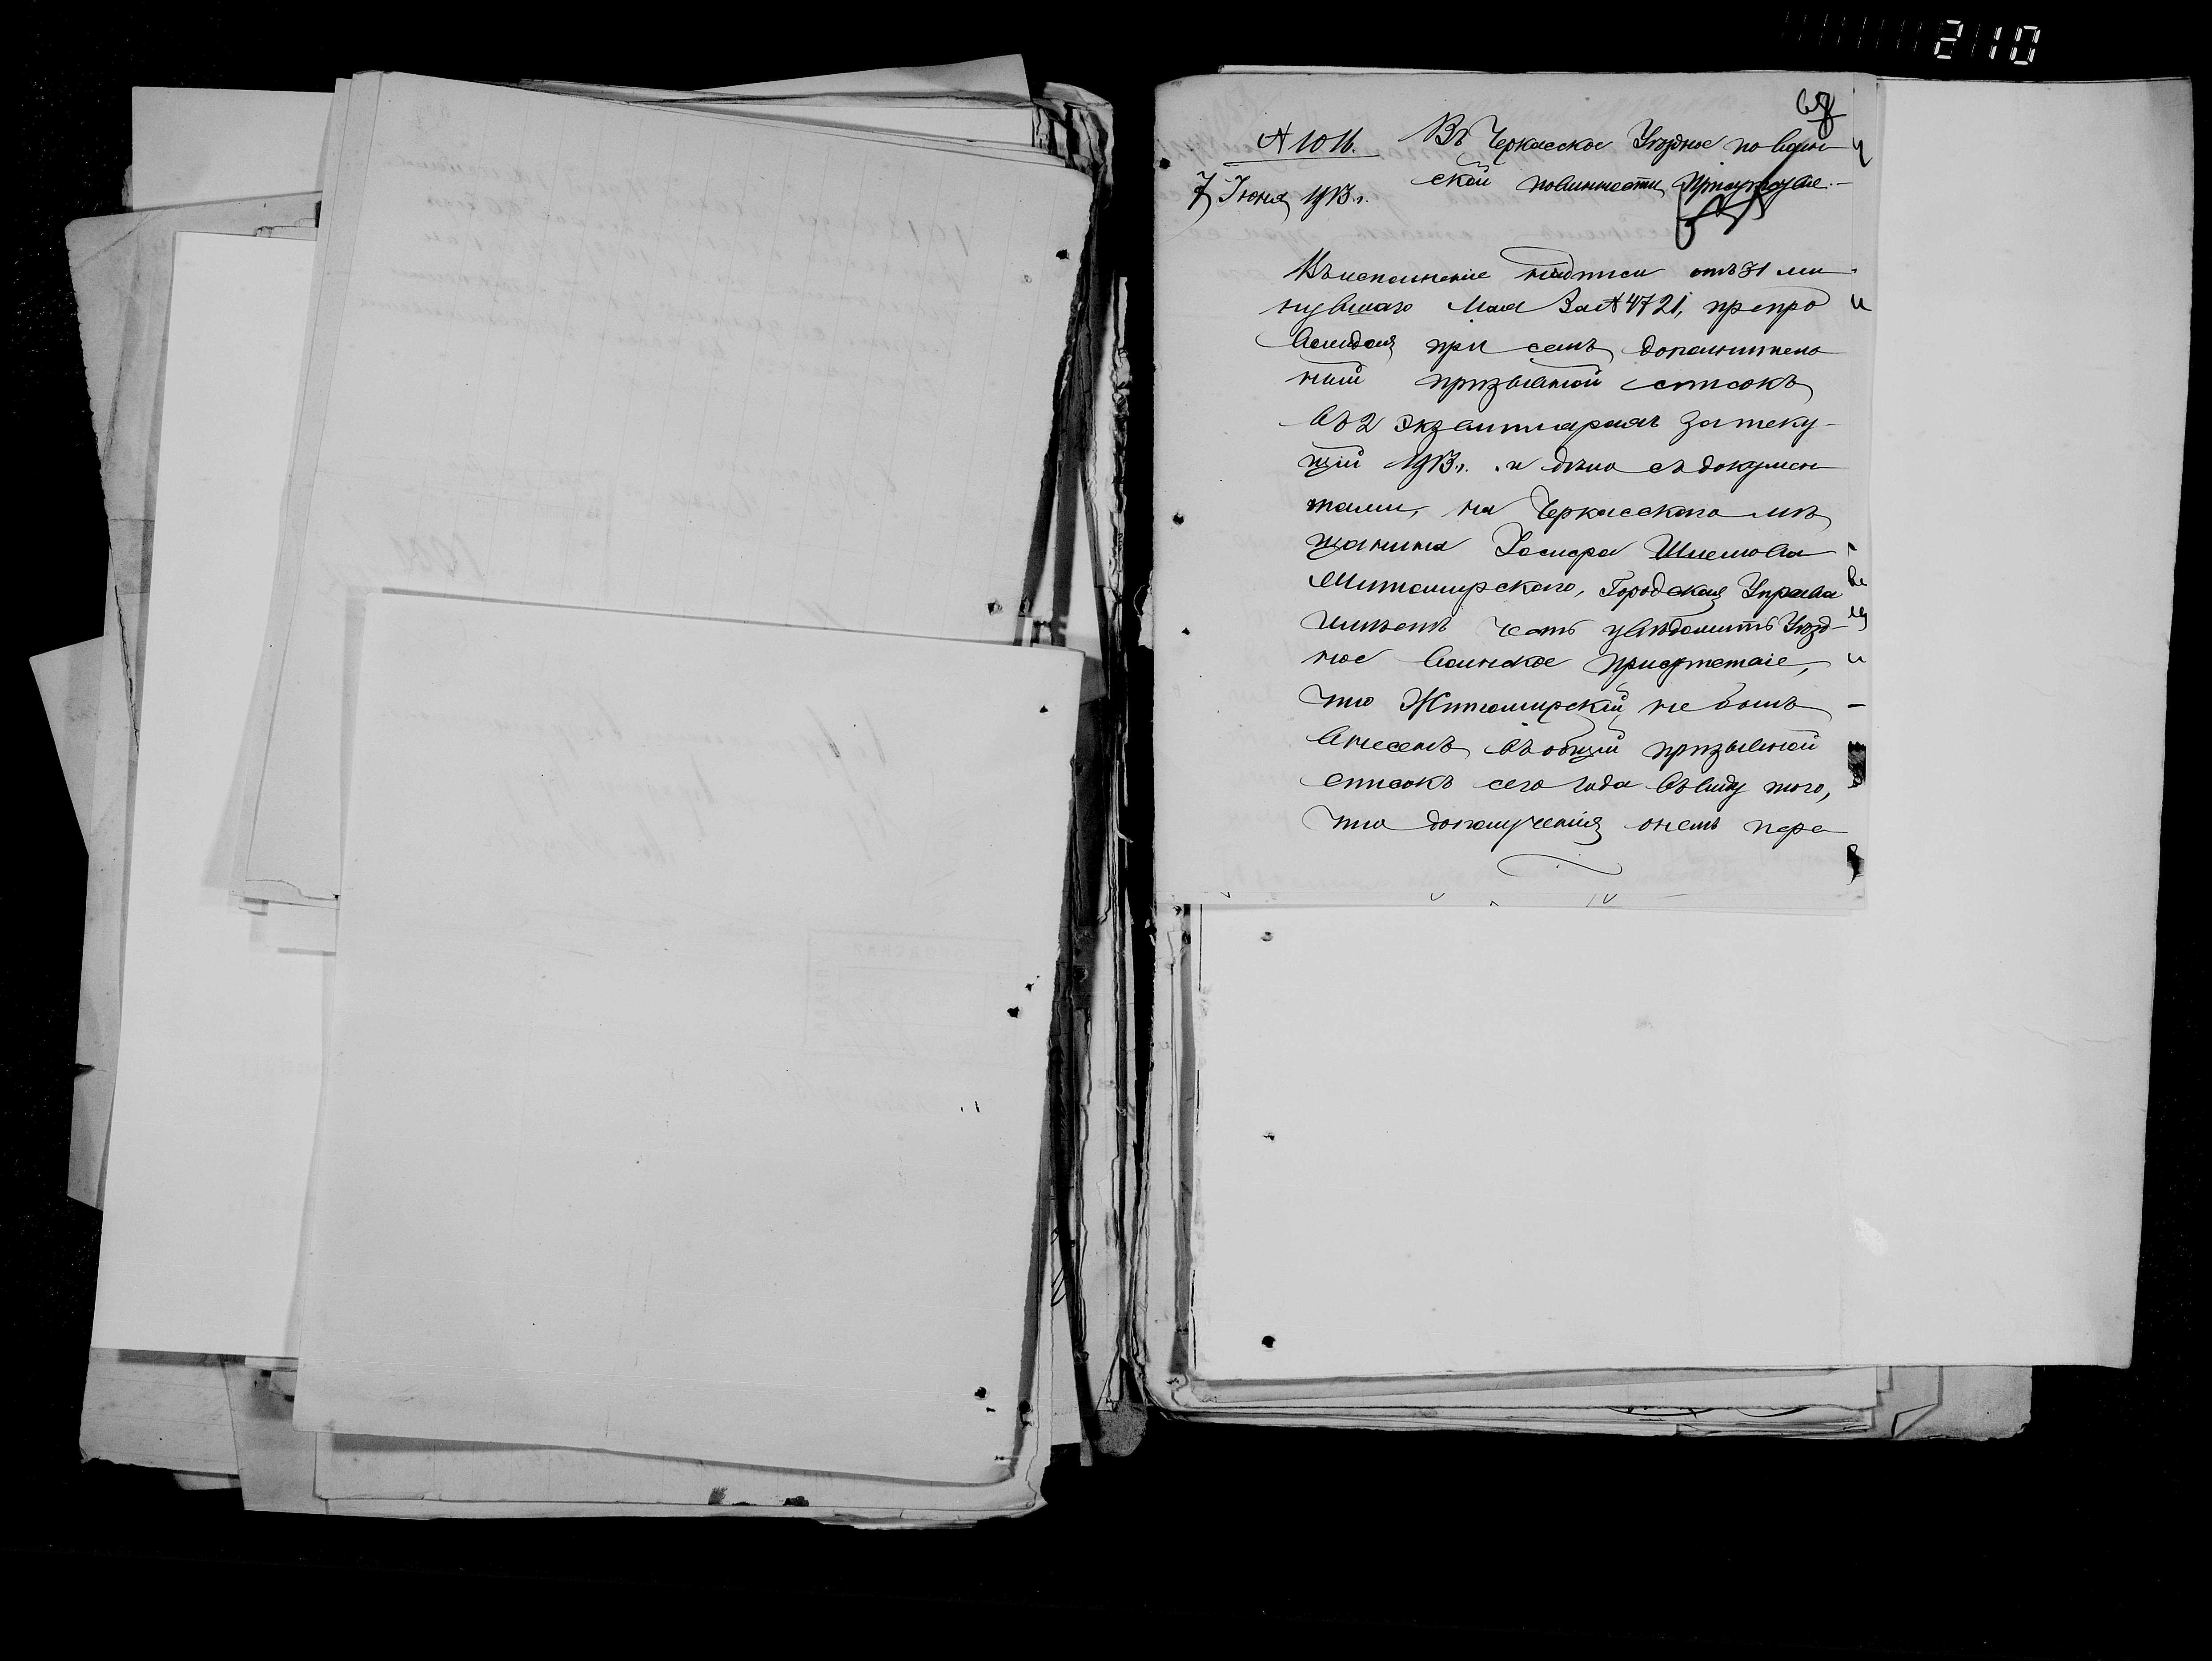 210
68
№ 1016.
7 Іюня 1913 г.
Въ Черкасское Уѣздное по воин
ской повинности Присутствіе.
Въ исполненіе надписи отъ 31 ми
нувшаго Мая за № 4721, препро
вождая при семъ дополнитель
ный призывной списокъ
въ 2 экземплярахъ за теку-
щій 1913 г. и дѣло съ докумен
тами, на Черкасскаго мѣ
щанина Іосифа Шлемова
Житомирскаго, Городская Управа
имѣетъ честь увѣдомить Уѣзд-
ное Воинское присутствіе,
что Житомирскій не былъ
внесенъ въ общій призывной
списокъ сего года въ виду того,
что до полученія о немъ пере